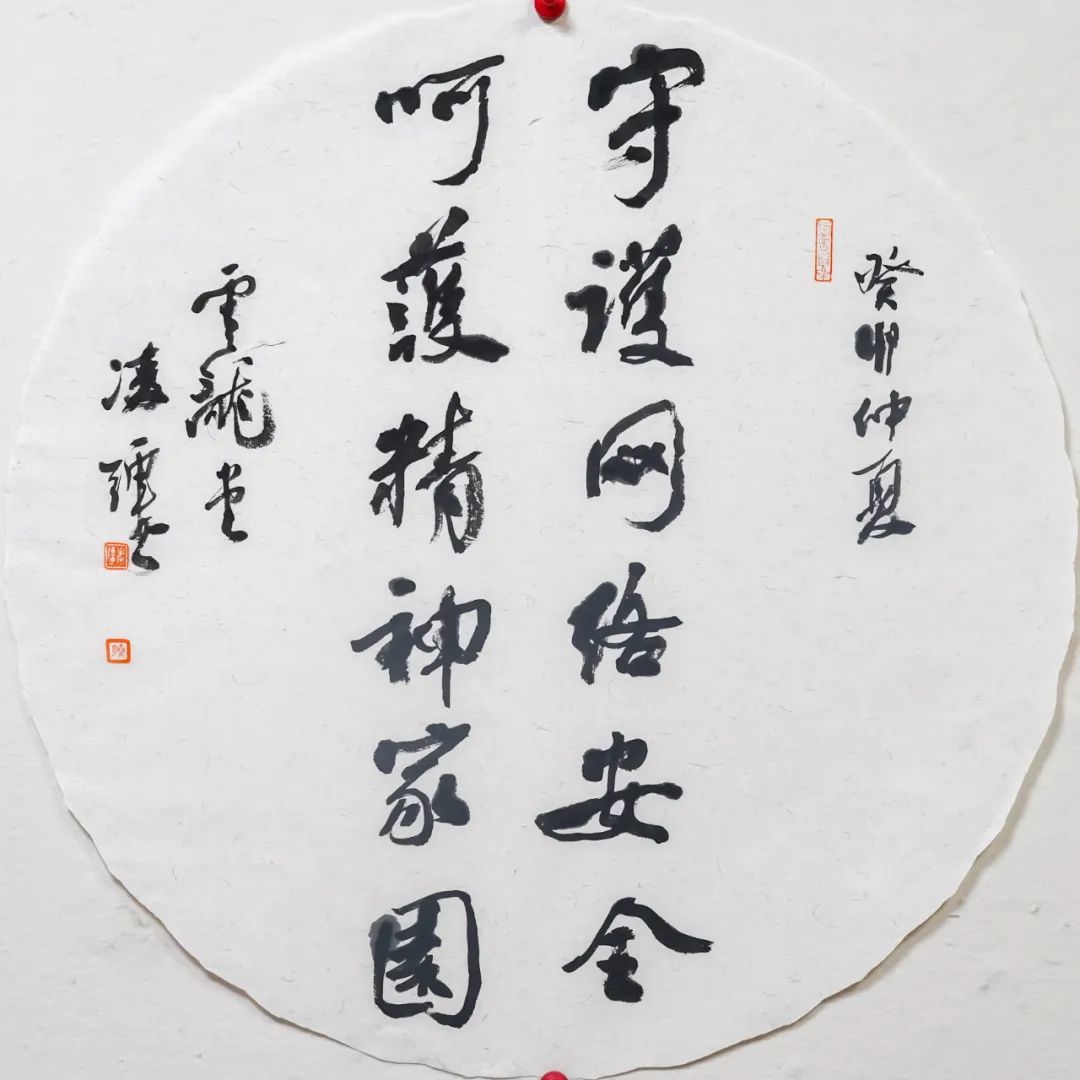 癸卯仲夏
守護网络安全
呵護精神家園
雲龍堂